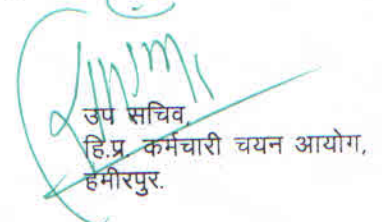 उप सचिव,
हि.प्र. कर्मचारी चयन आयोग,
हमीरपुर.